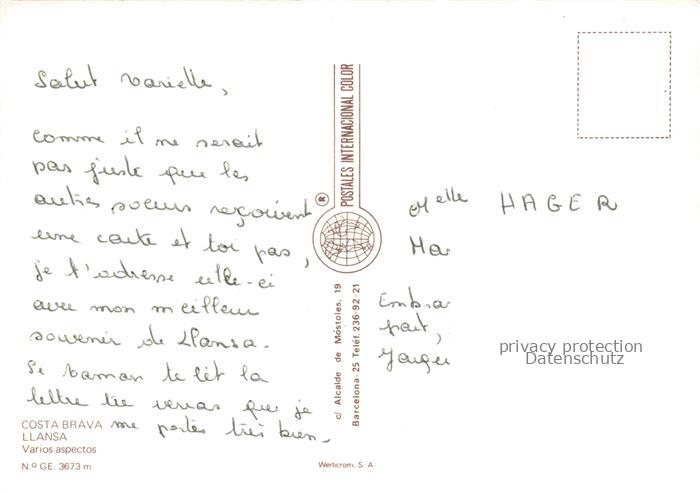 Salut Marielle,
comme il ne serait
pas juste que les
autres soeurs reçoivent
une carte et toi pas,
je t'adresse celle-ci
avec mon meilleur
souvenir de Llansa.
Si maman te lit la
lettre tu verras que je
me portes très bien.
COSTA BRAVA
LLANSA
Varios aspectos
N.º GE. 3673 m
® POSTALES INTERNACIONAL COLOR
c/ Alcalde de Móstoles, 19
Barcelona-25 Teléf. 236-92-21
Werticrom, S A
Melle HAGER
Ma
privacy protection
Datenschutz